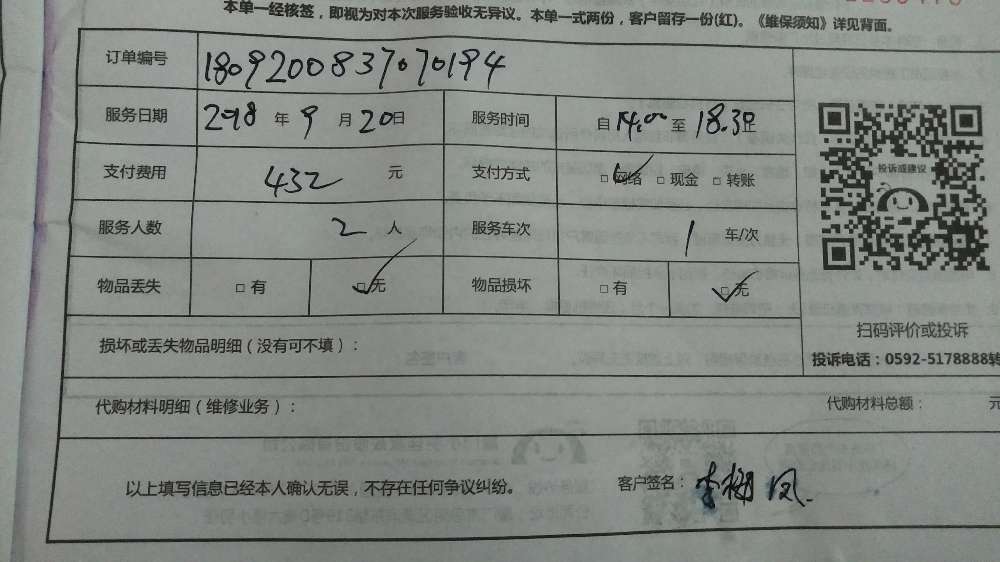 本单一经核签，即视为对本次服务验收无异议。本单一式两份，客户留存一份(红)。《维保须知》详见背面。
订单编号 1809200837070194
服务日期 2018 年 9 月 20日 服务时间 自 14.00 至 18.30止
支付费用 432 元 支付方式 □网络 □现金 □转账
投诉或建议
服务人数 2 人 服务车次 1 车/次
物品丢失 □有 □无 物品损坏 □有 □无
扫码评价或投诉
投诉电话：0592-5178888转
损坏或丢失物品明细（没有可不填）：
代购材料明细（维修业务）： 代购材料总额： 元
以上填写信息已经本人确认无误，不存在任何争议纠纷。 客户签名：李 凤